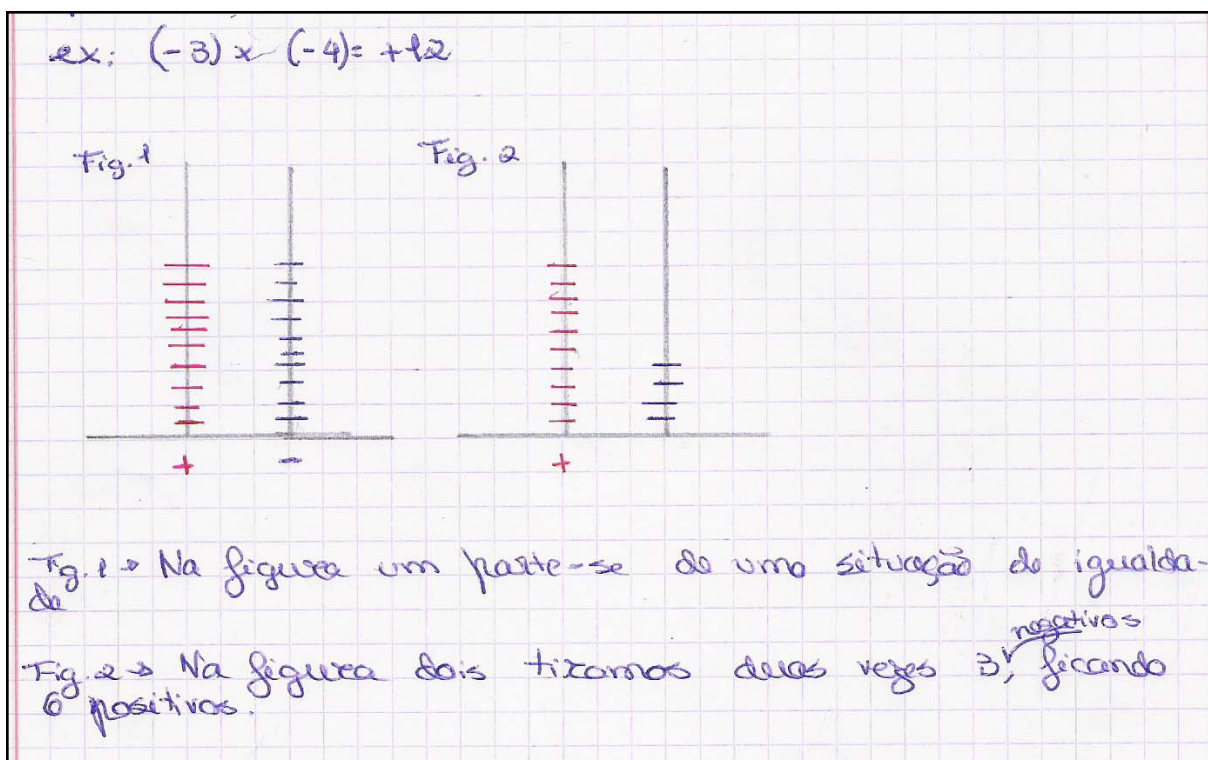 ex: (-3) x (-4) = +12
Fig. 1 Fig. 2
+ - +
Fig. 1 → Na figura um parte-se de uma situação de igualda-
de
negativos
Fig. 2 → Na figura dois tiramos duas vezes 3, ficando
6 positivos.